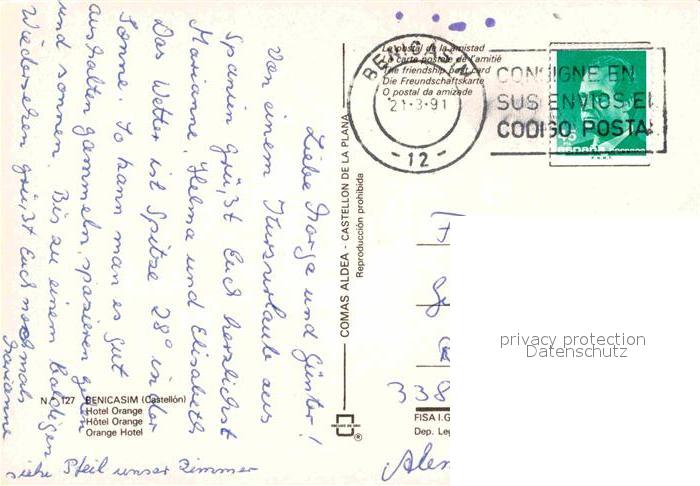 Liebe Marga und Günter!
Von einem Kurzurlaub aus
Spanien grüßt Euch herzlichst
Marianne, Helma und Elisabeth
Das Wetter ist Spitze 28° in der
Sonne. So kann man es gut
aushalten gammeln, spazieren gehen
und sonnen. Bis zu einem baldigen
Wiedersehen grüßt Euch nochmals
Marianne
siehe Pfeil unser Zimmer
N.º 127 BENICASIM (Castellón)
Hotel Orange
Hôtel Orange
Orange Hotel
COMAS ALDEA - CASTELLON DE LA PLANA
Reproducción prohibida
La postal de la amistad
La carte postale de l'amitié
The friendship post card
Die Freundschaftskarte
O postal da amizade
BENICASIM
21-3-91
-12-
CONSIGNE EN
SUS ENVIOS EL
CODIGO POSTAL
ESPAÑA
338
FISA I.G
Dep. Leg
privacy protection
Datenschutz